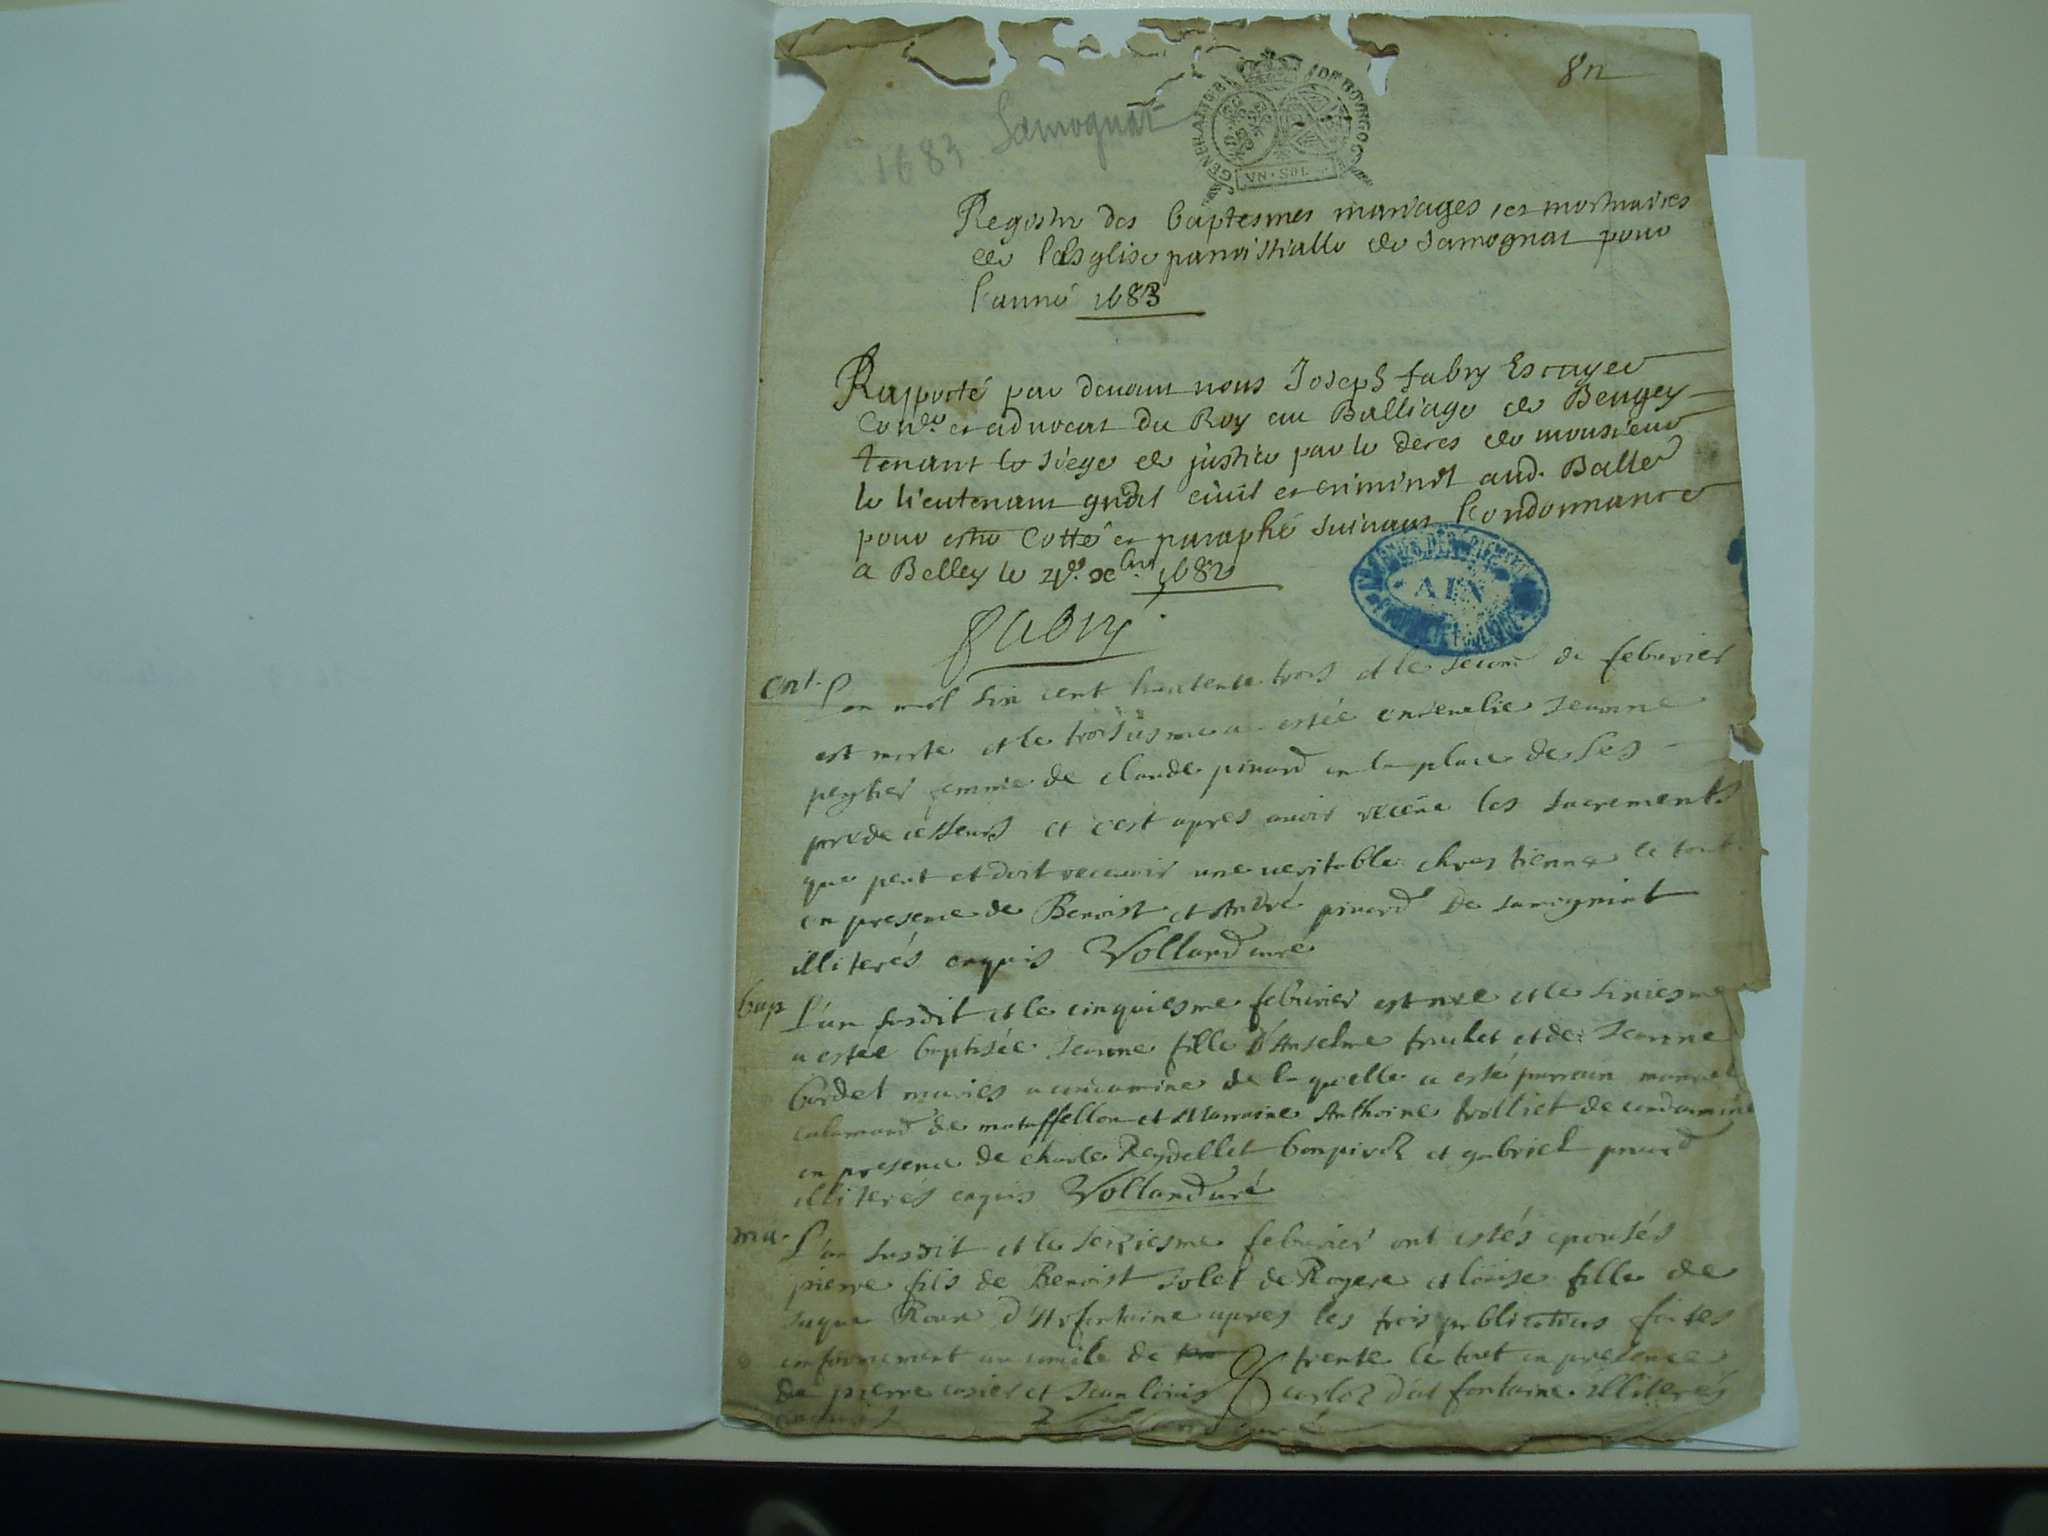 1683 Samognat
GENERALITE DE BOVRGOG
VN · SOL
Registre des baptesmes mariages et mortuaires
de lesglise parroissialle de Samognat pour
l'anné 1683
Rapporté par devant nous Joseph fabry Escuyer
Con.er et advocat du Roy au Balliage de Beugey
tenant le siege de justice par le deces de monsieur
le lieutenant gnâl civil et criminel aud. Balle
pour estre Cotté et paraphé suivant l'ordonnance
a Belley le xbre 1682
fabry
ent. L'an mil six cent huictente trois et le second de febvrier
est morte et le troisiesme a estée ensevelie Jeanne
femme de claude pinard en la place de ses
predecesseurs et c'est apres avoir receue les sacrements
que peut et doit recevoir une veritable chrestienne le tout
en presence de Benoist et André pinard de samogniat
illiterés enquis Volland curé
bap L'an susdit et le cinquiesme febvrier est née et le sixiesme
a estée baptisée Jeanne fille d'Anselme et de Jeanne
bordet mariés a condamine de laquelle a esté parrain
de mataffellon et Marraine Anthoine trolliet de condamine
en presence de charle Reydellet et gabriel pinard
illiterés enquis Volland curé
ma. L'an susdit et le seiziesme febvrier ont estés epousés
pierre fils de Benoist de Rogere et loüise fille de
Jaque Roux d'Arfontaine apres les trois publications faites
conformement au concile de trente le tout en presence
de pierre et Jean loüis d'arfontaine illiterés
enquis Volland curé
AIN